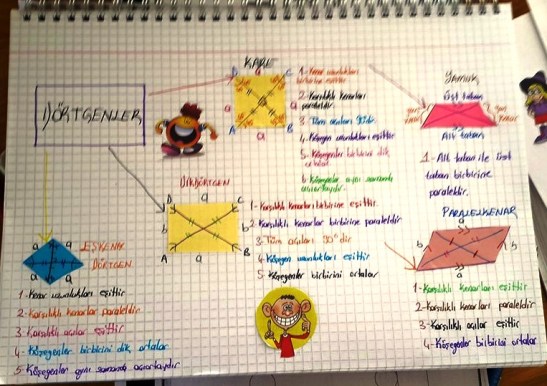 DÖRTGENLER
KARE
D a C
a a
A a B
1- Kenar uzunlukları
birbirine eşittir
2- Karşılıklı kenarları
paraleldir.
3- Tüm açıları
4- Köşegen uzunlukları eşittir
5- Köşegenleri birbirini dik
ortalar
6. Köşegenler aynı zamanda
açıortaydır.
YAMUK
Üst taban
yan kenar
yan kenar
Alt taban
1- Alt taban ile üst
taban birbirine
paraleldir.
DİKDÖRTGEN
D a C
b b
A a B
1- Karşılıklı kenarları birbirine eşittir.
2- Karşılıklı kenarlar birbirine paraleldir
3- Tüm açıları 90° dir
4- Köşegen uzunlukları eşittir
5. Köşegenler birbirini ortalar
EŞKENAR
DÖRTGEN
a a
a a
1- Kenar uzunlukları eşittir
2- Karşılıklı kenarlar paraleldir.
3- Karşılıklı açılar eşittir
4- Köşegenler birbirini dik ortalar
5- Köşegenler aynı zamanda açıortaydır
PARALELKENAR
a
b b
a
1- Karşılıklı kenarları eşittir
2- Karşılıklı kenarları paraleldir
3- Karşılıklı açılar eşittir
4- Köşegenler birbirini ortalar